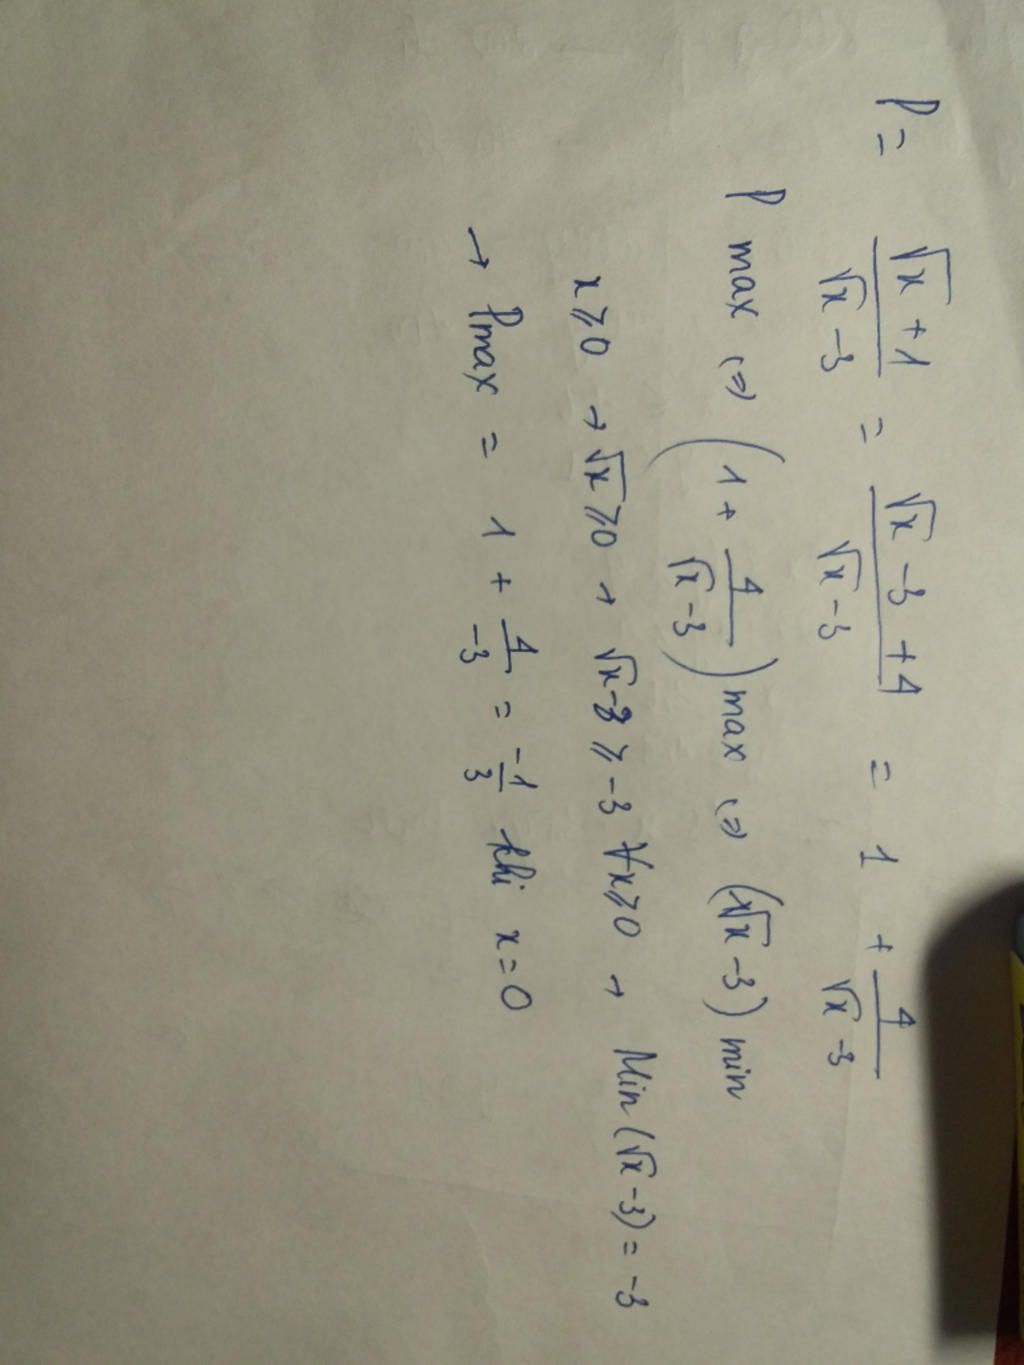 P = \frac{\sqrt{x}+1}{\sqrt{x}-3} = \frac{\sqrt{x}-3+4}{\sqrt{x}-3} = 1 + \frac{4}{\sqrt{x}-3}
P max ⇔ (1 + \frac{4}{\sqrt{x}-3}) max ⇔ (\sqrt{x}-3) min
x ⩾ 0 → \sqrt{x} ⩾ 0 → \sqrt{x}-3 ⩾ -3 ∀x⩾0 → Min (\sqrt{x}-3) = -3
→ Pmax = 1 + \frac{4}{-3} = \frac{-1}{3} khi x=0